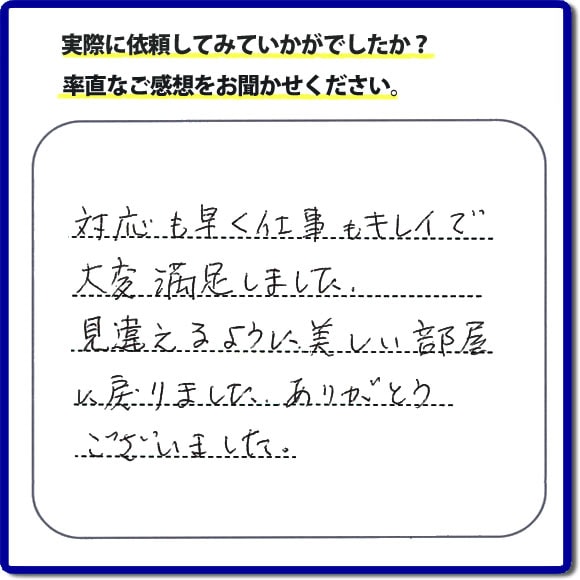 実際に依頼してみていかがでしたか？
率直なご感想をお聞かせください。
対応も早く仕事もキレイで
大変満足しました.
見違えるように美しい部屋
に戻りました.ありがとう
ございました。